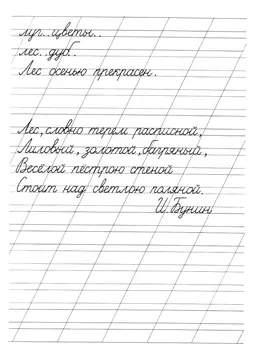 луг..цветы..
лес..дуб..
Лес осенью прекрасен.
Лес, словно терем расписной,
Лиловый, золотой, багряный,
Весёлой пёстрою стеной
Стоит над светлою поляной.
И. Бунин